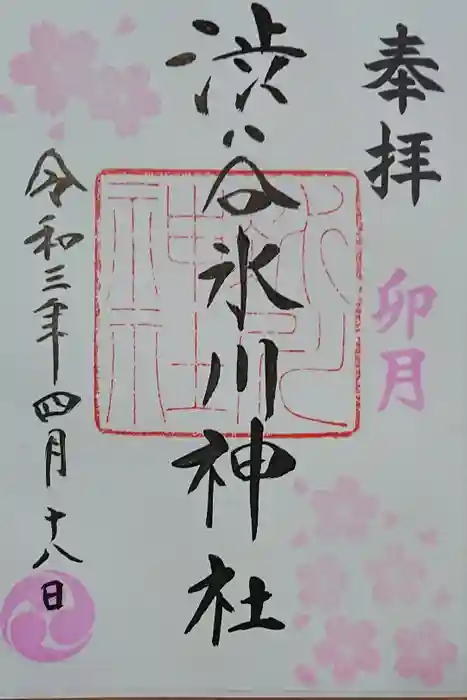 奉拝
卯月
渋谷氷川神社
令和三年四月十八日